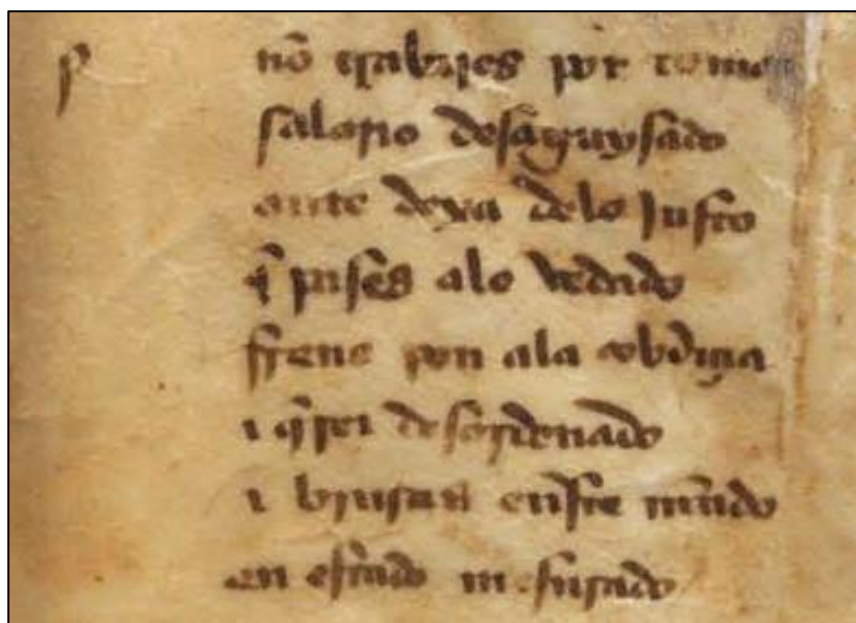 nõ trabajes por tomar
salario desaguysado
ante dexa delo justo
q̃ pases alo vedado
freno pon ala cobdiçia
i q̃rer desordenado
i biuras eneste mũdo
en estado mesurado